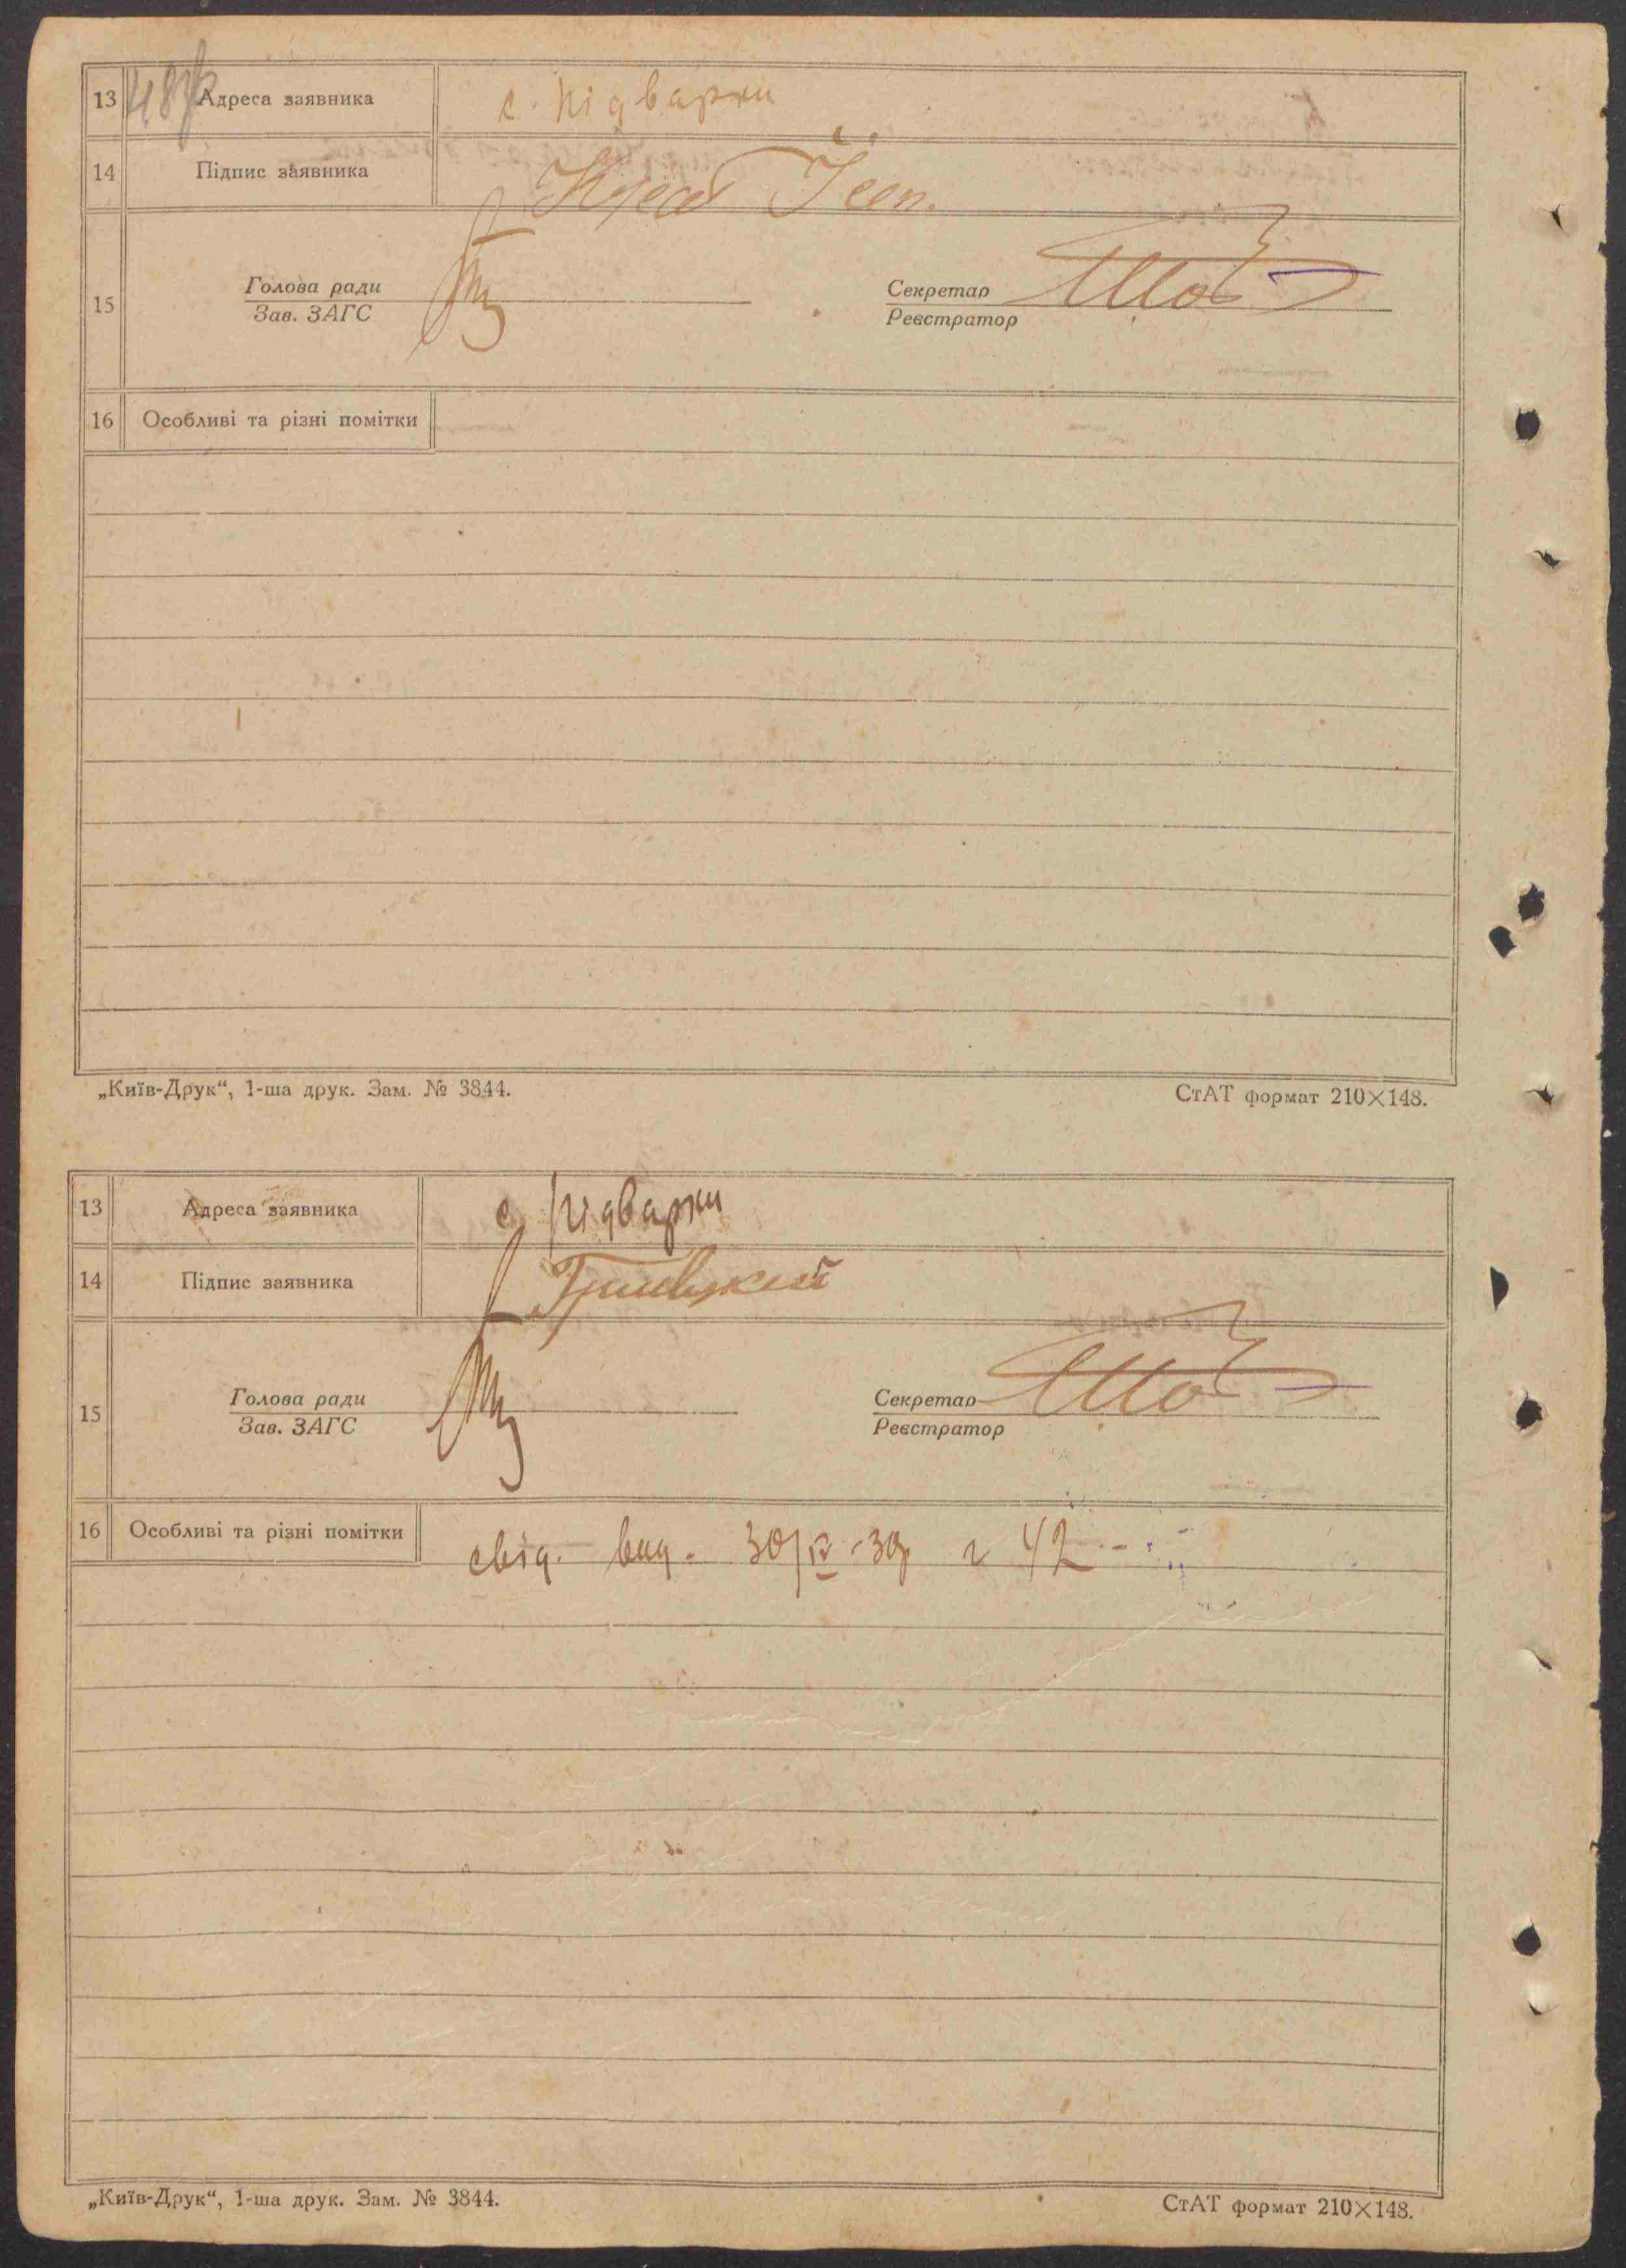 13 Адреса заявника с. Підварки
14 Підпис заявника
15 Голова ради Секретар
Зав. ЗАГС Реєстратор
16 Особливі та різні помітки
„Київ-Друк“, 1-ша друк. Зам. № 3844. СтАТ формат 210×148.
13 Адреса заявника с. Підварки
14 Підпис заявника
15 Голова ради Секретар
Зав. ЗАГС Реєстратор
16 Особливі та різні помітки свід. вид. 30/IV-30р
„Київ-Друк“, 1-ша друк. Зам. № 3844. СтАТ формат 210×148.